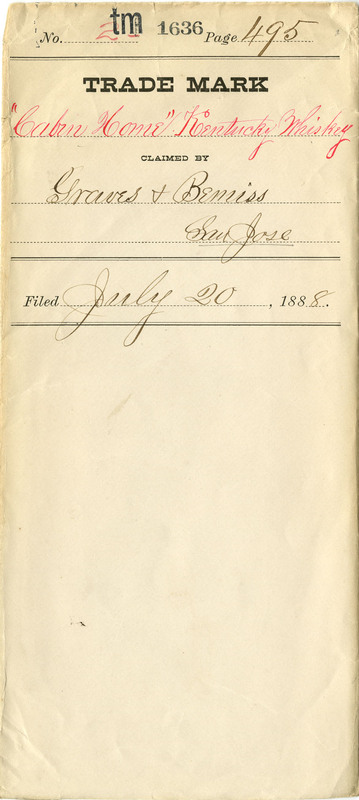 No. 2 tm 1636 Page 495
TRADE MARK
"Cabin Home" Kentucky Whiskey
CLAIMED BY
Graves & Bemiss
San Jose
Filed July 20, 1888.